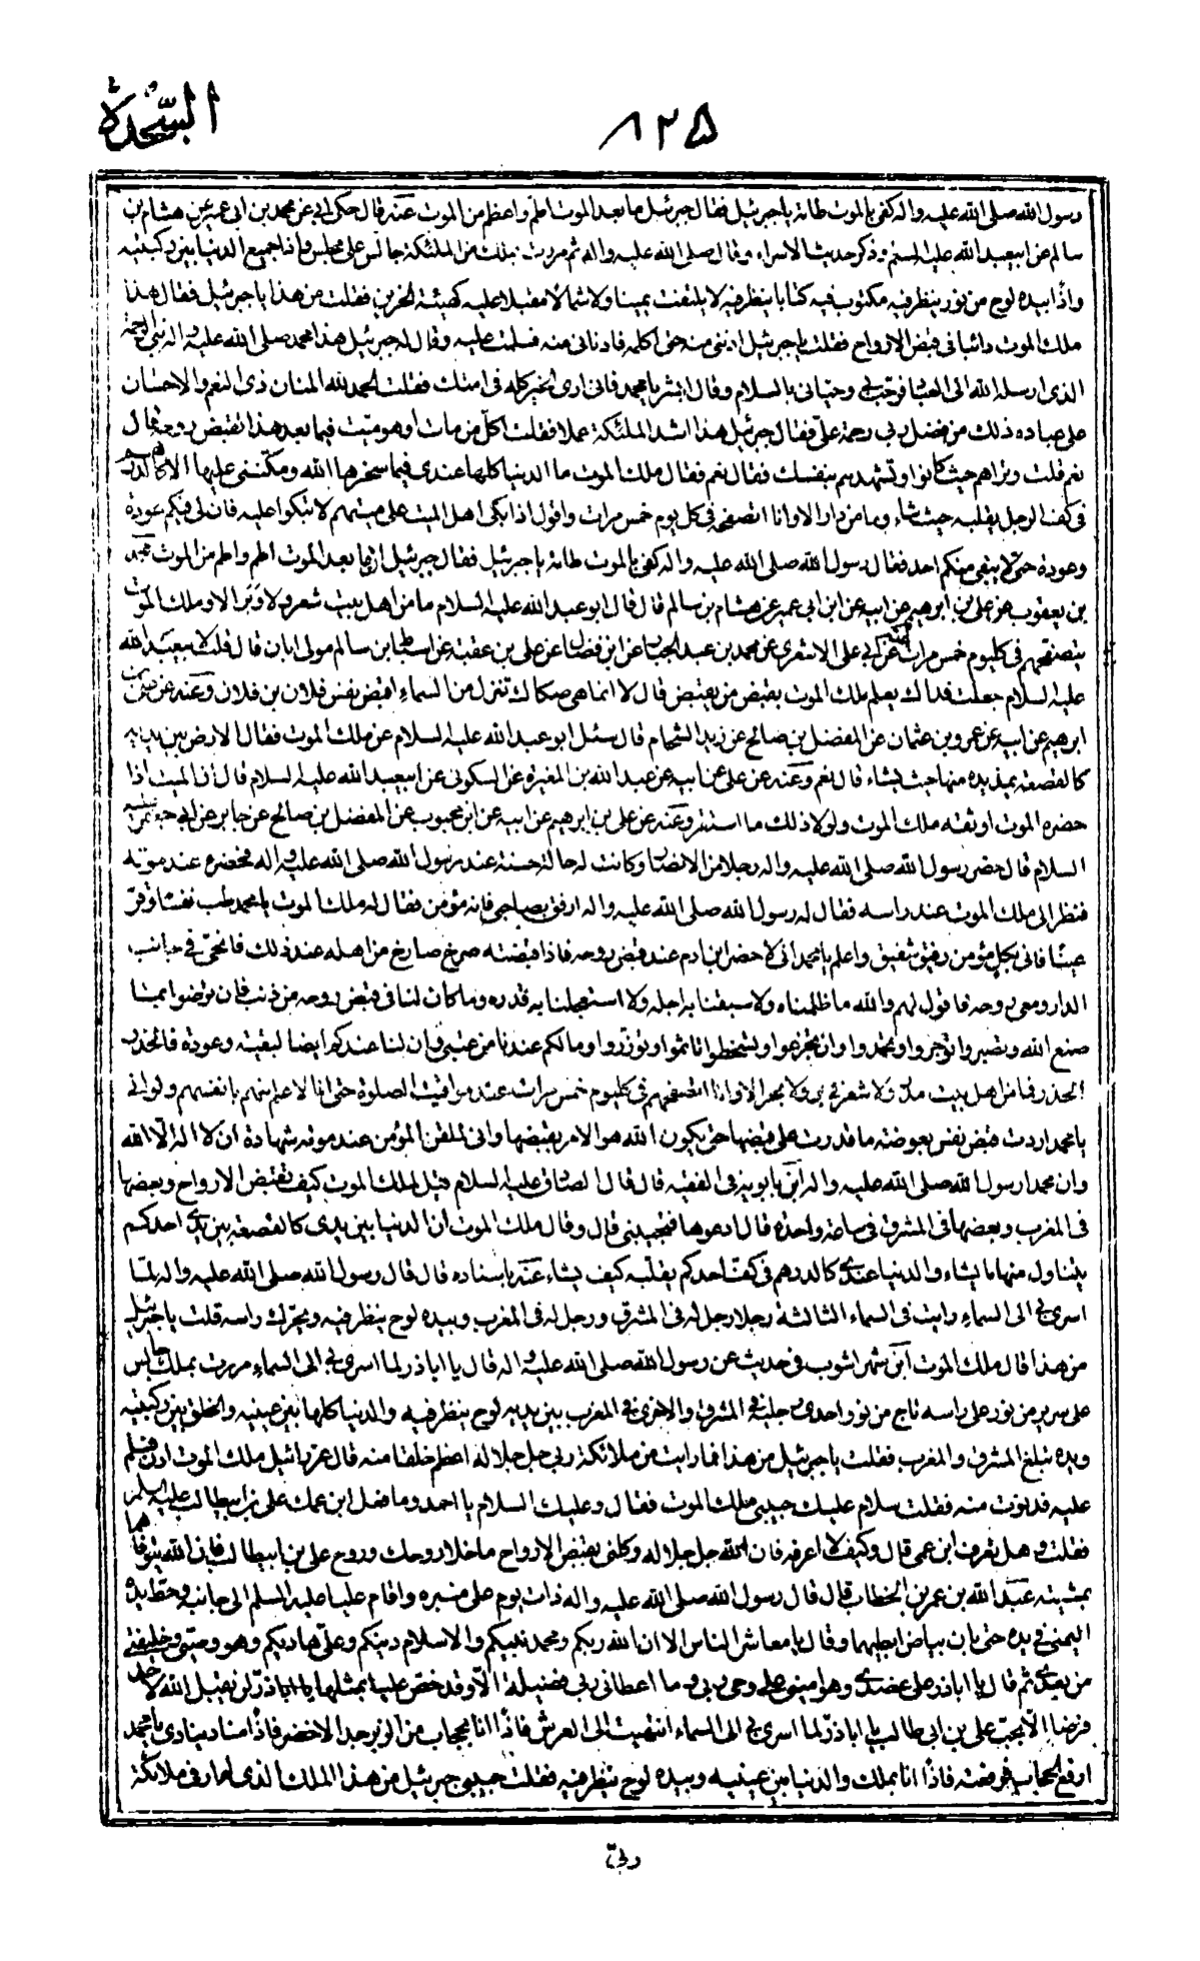 السجدة
۸۲۵
رسول الله صلى الله عليه واله كفى بالموت طامة يا جبرئيل فقال جبرئيل ما بعد الموت اطم واعظم من الموت عنه قال حكى ابى عن محمد بن ابى عمير عن هشام بن
سالم عن ابيعبد الله عليه السلم وذكر حديث الاسراء وقال صلى الله عليه واله ثم مررت بملك من الملئكة جالس على مجلس واذا جميع الدنيا بين ركبتيه
واذا بيده لوح من نور ينظر فيه مكتوب فيه كتابا ينظر فيه لا يلتفت يمينا ولا شمالا مقبلا عليه كهيئة الحزين فقلت من هذا يا جبرئيل فقال هذا
ملك الموت دائبا فى قبض الارواح فقلت يا جبرئيل ادننى منه حتى اكلمه فادنانى منه فسلمت عليه وقال له جبرئيل هذا محمد صلى الله عليه واله نبى الرحمة
الذى ارسله الله الى العباد فرحب بى وحيانى بالسلام وقال ابشر يا محمد فانى ارى الخير كله فى امتك فقلت الحمد لله المنان ذى النعم والاحسان
على عباده ذلك من فضل ربى ورحمة على فقال جبرئيل هذا اشد الملئكة عملا فقلت اكل من مات او هو ميت فيما بعد هذا تقبض روحه قال
نعم قلت وتراهم حيث كانوا وتشهدهم بنفسك فقال نعم فقال ملك الموت ما الدنيا كلها عندى فيما سخرها الله ومكننى عليها الا كالدرهم
فى كف الرجل يقلبه حيث شاء وما من دار الا وانا اتصفحه فى كل يوم خمس مرات واقول اذا بكى اهل الميت على ميتهم لا تبكوا عليه فان لى فيكم عودة
وعودة حتى لا يبقى منكم احد فقال رسول الله صلى الله عليه واله كفى بالموت طامة يا جبرئيل فقال جبرئيل ان ما بعد الموت اطم واطم من الموت محمد
بن يعقوب عن على بن ابرهيم عن ابيه عن ابن ابى عمير عن هشام بن سالم قال قال ابو عبد الله عليه السلام ما من اهل بيت شعر ولا وبر الا وملك الموت
يتصفحهم فى كل يوم خمس مرات عنه عن ابى على الاشعرى عن محمد بن عبد الجبار عن ابن فضال عن على بن عقبة عن اسباط بن سالم مولى ابان قال قلت لابيعبد الله
عليه السلام جعلت فداك يعلم ملك الموت بقبض من يقبض قال لا انما هى صكاك تنزل من السماء اقبض نفس فلان بن فلان وعنه عن على بن
ابرهيم عن ابيه عن عمرو بن عثمان عن المفضل بن صالح عن زيد الشحام قال سئل ابو عبد الله عليه السلام عن ملك الموت فقال الارض بين يديه
كالقصعة يمد يده منها حيث يشاء قال نعم وعنه عن على عن ابيه عن عبد الله بن المغيرة عن السكونى عن ابيعبد الله عليه السلام قال ان الميت اذا
حضره الموت اوثقه ملك الموت ولولا ذلك ما استقر وعنه عن على بن ابرهيم عن ابيه عن ابن محبوب عن المفضل بن صالح عن جابر عن ابى جعفر عليه
السلام قال حضر رسول الله صلى الله عليه واله رجلا من الانصار وكانت له حالة حسنة عند رسول الله صلى الله عليه واله فحضره عند موته
فنظر الى ملك الموت عند راسه فقال له رسول الله صلى الله عليه واله ارفق بصاحبى فانه مؤمن فقال له ملك الموت يا محمد طب نفسا وقر
عينا فانى بكل مؤمن رفيق شفيق واعلم يا محمد انى لاحضر ابن ادم عند قبض روحه فاذا قبضته صرخ صارخ من اهله عند ذلك فاتنحى فى جانب
الدار ومعى روحه فاقول لهم والله ما ظلمناه ولا سبقنا به اجله ولا استعجلنا به قدره وما كان لنا فى قبض روحه من ذنب فان ترضوا بما
صنع الله وتصبروا توجروا وتحمدوا وان تجزعوا وتسخطوا تاثموا وتوزروا وما لكم عندنا من عتبى وان لنا عندكم ايضا لبقية وعودة فالحذر
الحذر فما من اهل بيت مدر ولا شعر فى بر ولا بحر الا وانا اتصفحهم فى كل يوم خمس مرات عند مواقيت الصلوة حتى انا لاعلم منهم بانفسهم ولو انى
يا محمد اردت قبض نفس بعوضة ما قدرت على قبضها حتى يكون الله هو الامر بقبضها وانى لملقن المؤمن عند موته شهادة ان لا اله الا الله
وان محمدا رسول الله صلى الله عليه واله ابن بابويه فى الفقيه قال قال الصادق عليه السلام قيل لملك الموت كيف تقبض الارواح وبعضها
فى المغرب وبعضها فى المشرق فى ساعة واحدة قال ادعوها فتجيبنى قال وقال ملك الموت ان الدنيا بين يدى كالقصعة بين يدى احدكم
يتناول منها ما يشاء والدنيا عندى كالدرهم فى كف احدكم يقلبه كيف يشاء عنه باسناده قال قال رسول الله صلى الله عليه واله لما
اسرى بى الى السماء رايت فى السماء الثالثة رجلا رجل له فى المشرق ورجل له فى المغرب وبيده لوح ينظر فيه ويحرك راسه قلت يا جبرئيل
من هذا قال ملك الموت ابن شهراشوب فى حديث عن رسول الله صلى الله عليه واله قال يا اباذر لما اسرى بى الى السماء مررت بملك جالس
على سرير من نور على راسه تاج من نور احدى رجليه فى المشرق والاخرى فى المغرب بين يديه لوح ينظر فيه والدنيا كلها بين عينيه والخلق بين ركبتيه
ويده تبلغ المشرق والمغرب فقلت يا جبرئيل من هذا فما رايت من ملائكة ربى جل جلاله اعظم خلقا منه قال عزرائيل ملك الموت ادن فسلم
عليه فدنوت منه فقلت سلام عليك حبيبى ملك الموت فقال وعليك السلام يا احمد وما فعل ابن عمك على بن ابيطالب عليه السلم
فقلت وهل تعرف ابن عمى قال وكيف لا اعرفه فان الله جل جلاله وكلنى بقبض الارواح ما خلا روحك وروح على بن ابيطالب فان الله يتوفاهما
بمشيته عبد الله بن عمر بن الخطاب قال قال رسول الله صلى الله عليه واله ذات يوم على منبره واقام عليا عليه السلم الى جانبه وحط يده
اليمنى فى يده حتى بان بياض ابطيهما وقال يا معاشر الناس الا ان الله ربكم ومحمد نبيكم والاسلام دينكم وعلى هاديكم وهو وصيى وخليفتى
من بعدى ثم قال يا اباذر على عضدى وهو امينى على وحى ربى وما اعطانى ربى فضيلة الا وقد خص عليا بمثلها يا اباذر لن يقبل الله لاحد
فرضا الا بحب على بن ابى طالب يا اباذر لما اسرى بى الى السماء انتهيت الى العرش فاذا انا بحجاب من الزبرجد الاخضر فاذا مناد ينادى يا محمد
ارفع الحجاب فرفعته فاذا انا بملك والدنيا بين عينيه وبيده لوح ينظر فيه فقلت حبيبى جبرئيل من هذا الملك الذى لم ار فى ملائكة
ربى